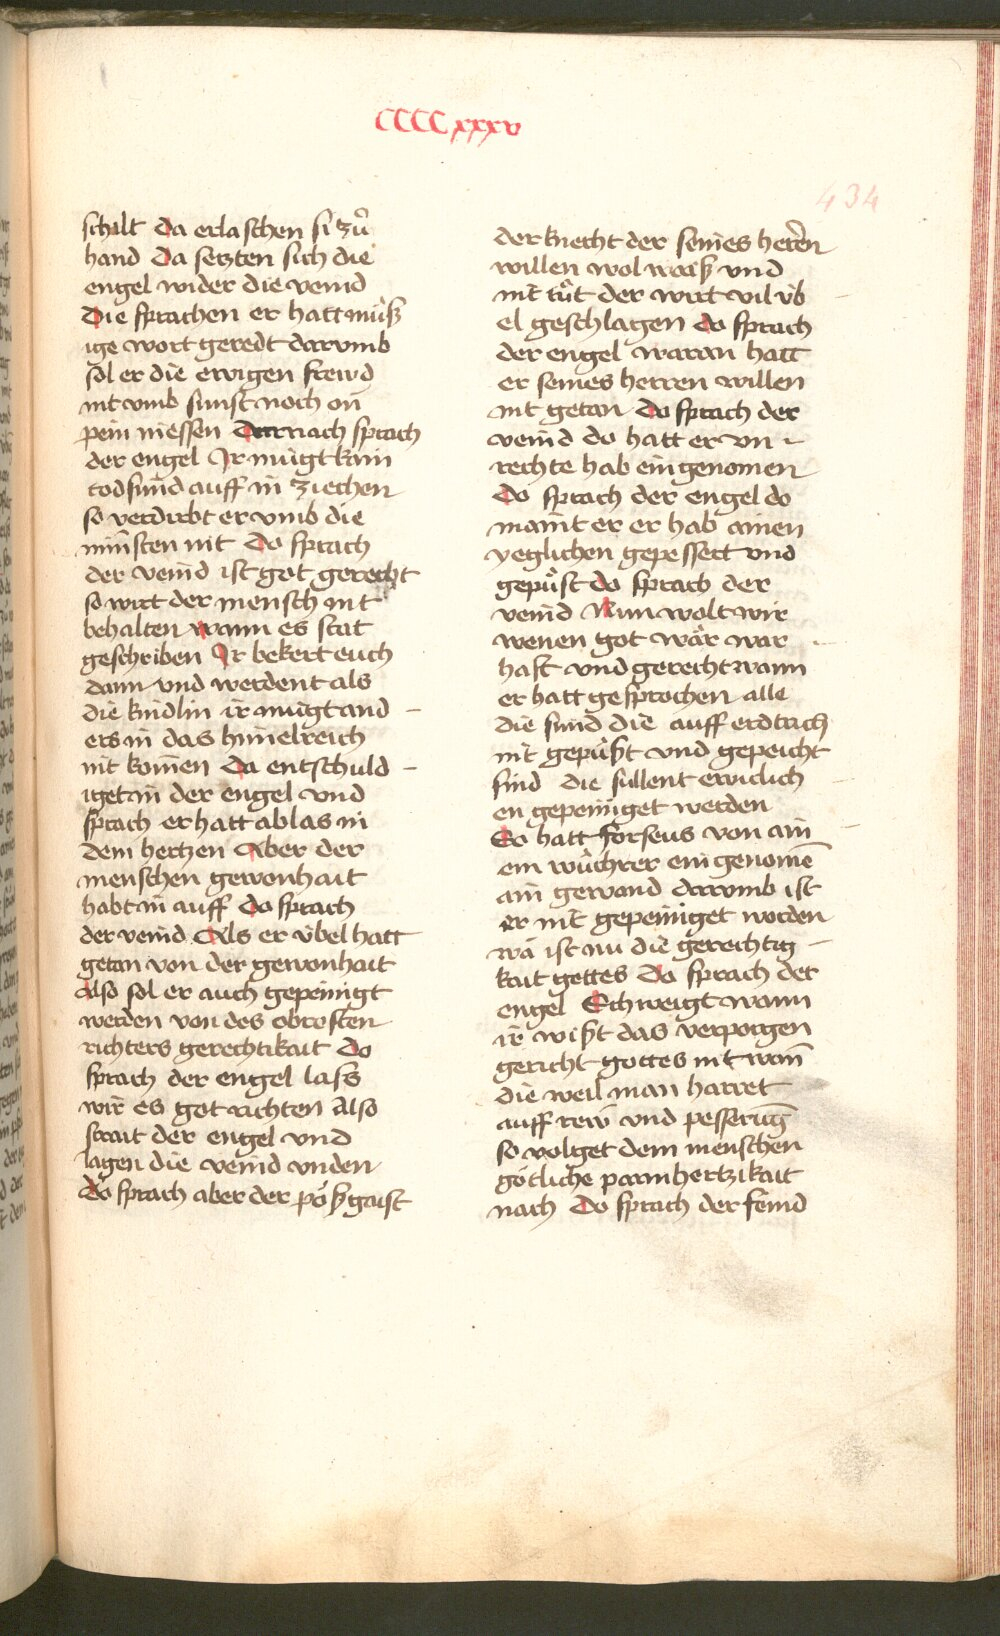 CCCCxxxv
434
schilt Da erlaschen si zů
hand Da setzten sich die
engel wider die veind
Die sprachen er hatt müss
ige wort geredt darvmb
sol er die ewigen frewd
nit vmb sunst noch on
pein niessen Darnach sprach
der engel Ir mügt kain
todsünd auff in ziechen
so verdirbt er vmb die
minsten nit Do sprach
der veind ist got gerecht
so wirt der mensch nit
behalten wann es stat
geschriben Ir bekert euch
dann vnd werdent als
die kindlin ir mügt and
ers in das himelreich
nit komen Da entschuld
iget in der engel vnd
sprach er hatt ablas in
dem hertzen Aber der
menschen gewonhait
habt in auff Do sprach
der veind Als er v̈bel hatt
getan von der gewonhait
Also sol er auch gepeinigt
werden von des obrosten
richters gerechtikait Do
sprach der engel lass
wir es got richten Also
strait der engel vnd
lagen die veind vnden
Do sprach aber der pösz gaist
der knecht der seines herren
willen wol waisz vnd
nit tůt der wirt vil v̈b
el geschlagen Do sprach
der engel waran hatt
er seines herren willen
nit getan Do sprach der
veind do hatt er vn
rechte hab eingenomen
Do sprach der engel do
maint er er hab ainen
yeglichen gepessert vnd
gepůst Do sprach der
veind Nun wolt wir
wenen got wär war
haft vnd gerecht wann
er hatt gesprochen alle
die sünd die auff erdtrich
nit gepüszt vnd gepeicht
sind die süllent ewiclich
en gepeiniget werden
So hatt forseus von ain
em wůchrer ein genomē
ain gewand darvmb ist
er nit gepeiniget worden
wa ist nu die gerechtig
kait gottes Do sprach der
engel Schweigt wann
ir wiszt das verporgen
gericht gottes nit wann̄
die weil man harret
auff rew vnd pesserūg
so volget dem menschen
götliche parmhertzikait
nach Do sprach der feind